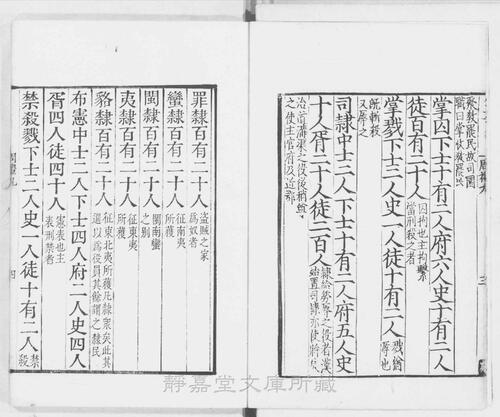 掌囚下士十有二人府六人史十有二人
徒百有二十人囚拘也主拘繫
當刑殺之者
掌戮下士二人史一人徒十有二人戮猶
辱也
既斬殺
又辱之
司隸中士二人下士十有二人府五人史
十人胥二十人徒二百人隸給勞辱之役者漢
始置司隸亦使將徒
治道溝渠之役後稍尊
之使主官府及近郡
罪隸百有二十人盜賊之家
為奴者
蠻隸百有二十人征南夷
所獲
閩隸百有二十人閩南蠻
之別
夷隸百有二十人征東夷
所獲
貉隸百有二十人征東北夷所獲凡隸衆矣此其
選以為役員其餘謂之隸民
布憲中士二人下士四人府二人史四人
胥四人徒四十人憲表也主
表刑禁者
禁殺戮下士二人史一人徒十有二人禁
殺
四
靜嘉堂文庫所藏